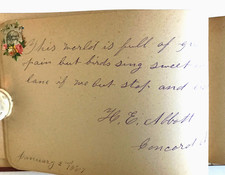 This world is full of
pain but birds sing sweet
lane if we but stop and
H. E. Abbott
Concord
January 6